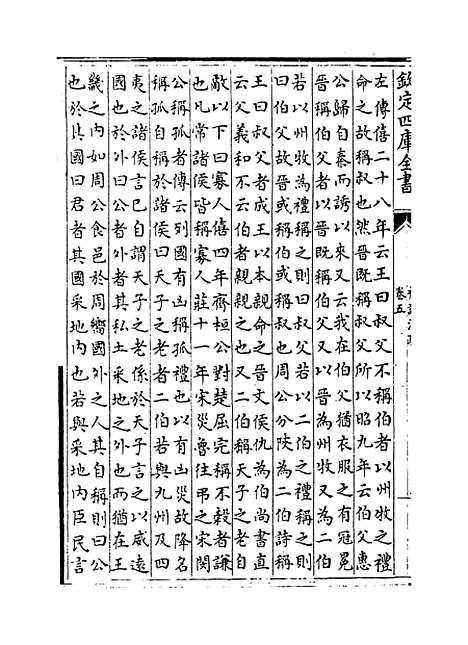 欽定四庫全書
卷五
左傳僖二十八年云王曰叔父不稱伯者以州牧之禮
命之故稱叔也然晉既稱叔父所以昭九年云伯父惠
公歸自秦而誘以來又云我在伯父猶衣服之有冠冕
晉稱伯父者以晉既稱叔父又以晉為州牧又為二伯
若以州牧為禮稱之則曰叔父若以二伯之禮稱之則
曰伯父故晉或稱伯或稱叔也周公分陜為二伯詩稱
王曰叔父者成王以本親命之晉文侯仇為伯尚書直
云父義和不云伯者親親之也又二伯稱天子之老自
敵以下曰寡人僖四年齊桓公對楚屈完稱不穀者謙
也凡常諸侯皆稱寡人莊十一年宋災魯往弔之宋閔
公稱孤者傳云列國有凶稱孤禮也以有凶災故降名
稱孤自稱於諸侯曰天子之老者二伯若與九州及四
夷之諸侯言已自謂天子之老係於天子言之以威遠
國也於外曰公者外者其私土采地之外也而猶在王
畿之内如周公食邑於周嚮國外之人其自稱則曰公
也於其國曰君者其國采地内也若與采地内臣民言